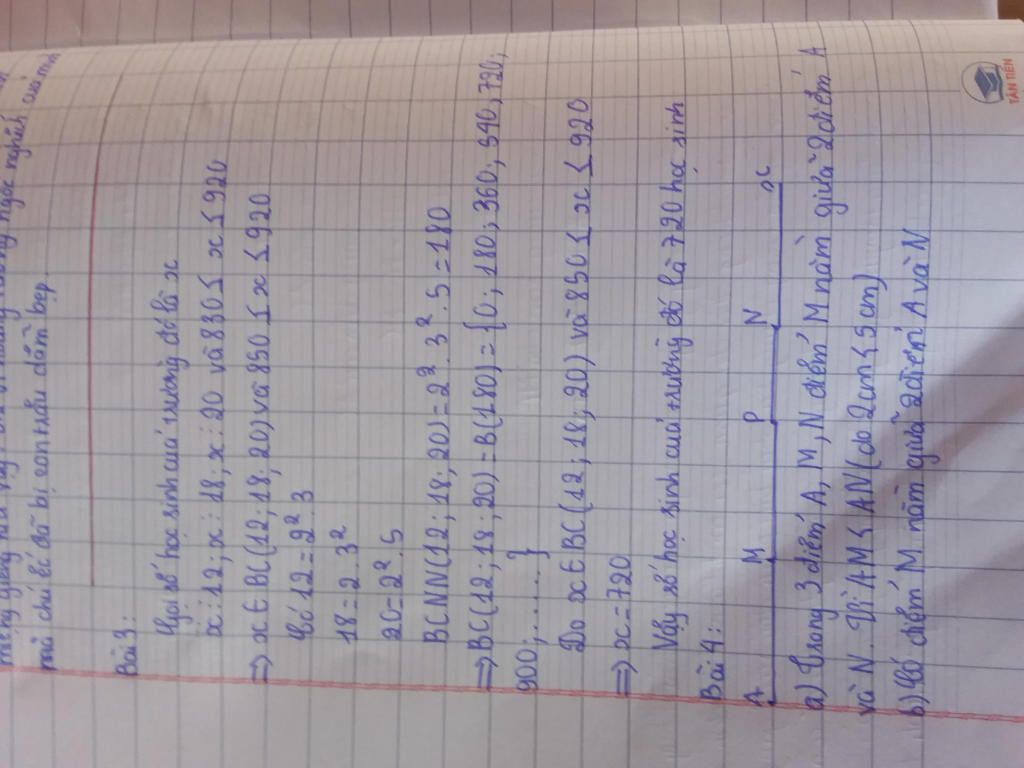 mà chú ếc đã bị con trâu dẫm bẹp.
Bài 3:
Gọi số học sinh của trường đó là x
x ⋮ 12; x ⋮ 18; x ⋮ 20 và 830 ≤ x ≤ 920
=> x ∈ BC(12; 18; 20) và 850 ≤ x ≤ 920
Có 12 = 2². 3
18 = 2. 3²
20 = 2². 5
BCNN(12; 18; 20) = 2². 3². 5 = 180
=> BC(12; 18; 20) = B(180) = {0; 180; 360; 540; 720;
900; ......}
Do x ∈ BC(12; 18; 20) và 850 ≤ x ≤ 920
=> x = 720
Vậy số học sinh của trường đó là 720 học sinh
Bài 4:
A M P N x
a) Trong 3 điểm A, M, N điểm M nằm giữa 2 điểm A
và N. Vì AM < AN (do 2cm < 5cm)
b) Có điểm M nằm giữa 2 điểm A và N
TÂN TIẾN